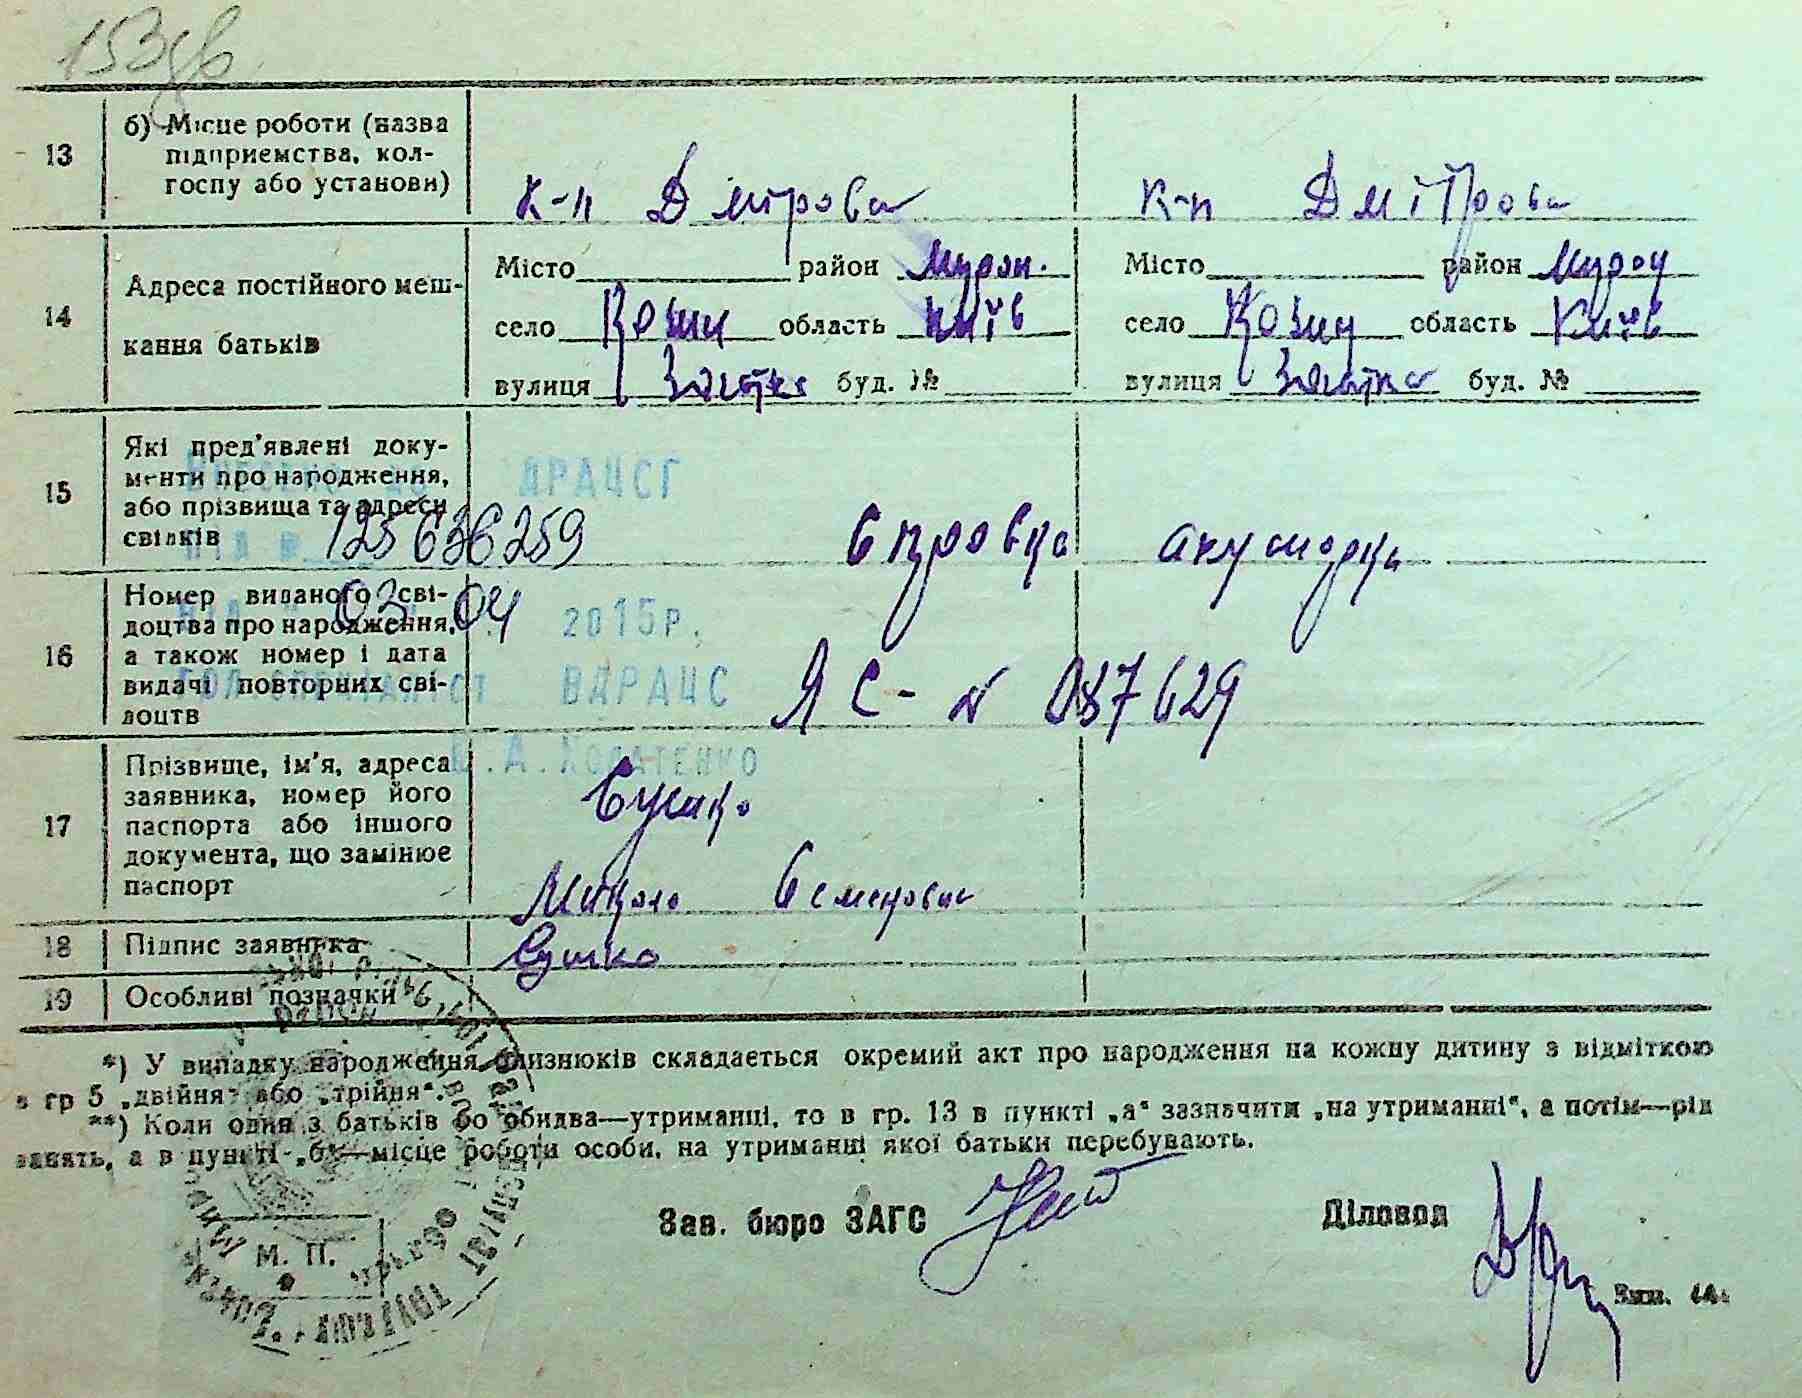 153 зв
13 б) Місце роботи (назва
підприємства, кол-
госпу або установи)
к-п Дмітрова к-п Дмітрова
14 Адреса постійного меш-
кання батьків
Місто район Мирон. Місто район Мирон
село Козин область Київ село Козин область Київ
вулиця буд. № вулиця буд. №
15 Які пред'явлені доку-
менти про народження,
або прізвища та адреси
свідків
ДРАЦСГ
125636259
Справка акушорки
16 Номер виданого сві-
доцтва про народження,
а також номер і дата
видачі повторних сві-
доцтв
03 04 2015р.
ВДРАЦС
ЯС- N 087629
17 Прізвище, ім'я, адреса
заявника, номер його
паспорта або іншого
документа, що замінює
паспорт
Сушко
Микола Семенович
18 Підпис заявника Сушко
19 Особливі позначки
*) У випадку народження близнюків складається окремий акт про народження на кожну дитину з відміткою
в гр 5 „двійня" або „трійня".
**) Коли один з батьків бо обидва—утриманці, то в гр. 13 в пункті „а" зазначити „на утриманні", а потім—рід
занять, а в пункті „б"—місце роботи особи, на утриманні якої батьки перебувають.
Зав. бюро ЗАГС Діловод
М. П.